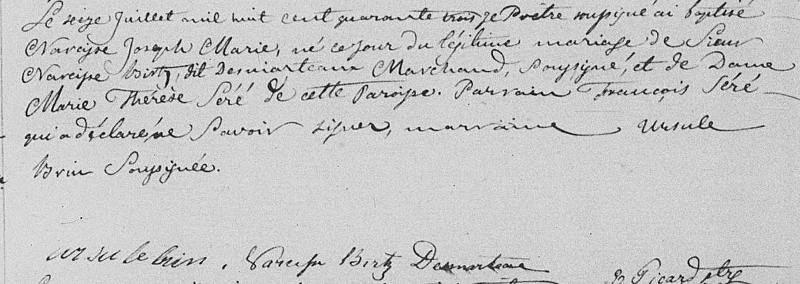 Le seize Juillet mil huit cent quarante trois je Prêtre soussigné ai baptisé
Narcisse Joseph Marie, né ce jour du légitime mariage de Sieur
Narcisse Birtz, dit Desmarteaux Marchand, Soussigné, et de Dame
Marie Thérèse Séré de cette Paroisse. Parrain François Séré
qui a déclaré ne Savoir signer, marraine Ursule
Brin Soussignée.
ursule brin. Narcisse Birtz Desmarteau
Picard ptre